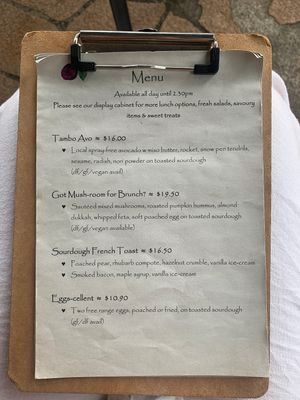 Menu
Available all day until 2.30pm
Please see our display cabinet for more lunch options, fresh salads, savoury
items & sweet treats
Tambo Avo ≈ $16.00
♥ Local spray-free avocado w miso butter, rocket, snow pea tendrils,
sesame, radish, nori powder on toasted sourdough
(df/gf/vegan avail)
Got Mush-room for Brunch? ≈ $19.50
♥ Sautéed mixed mushrooms, roasted pumpkin hummus, almond
dukkah, whipped feta, soft poached egg on toasted sourdough
(df/gf/vegan available)
Sourdough French Toast ≈ $16.50
♥ Poached pear, rhubarb compote, hazelnut crumble, vanilla ice-cream
♥ Smoked bacon, maple syrup, vanilla ice-cream
Eggs-cellent ≈ $10.90
♥ Two free range eggs, poached or fried, on toasted sourdough
(gf/df avail)